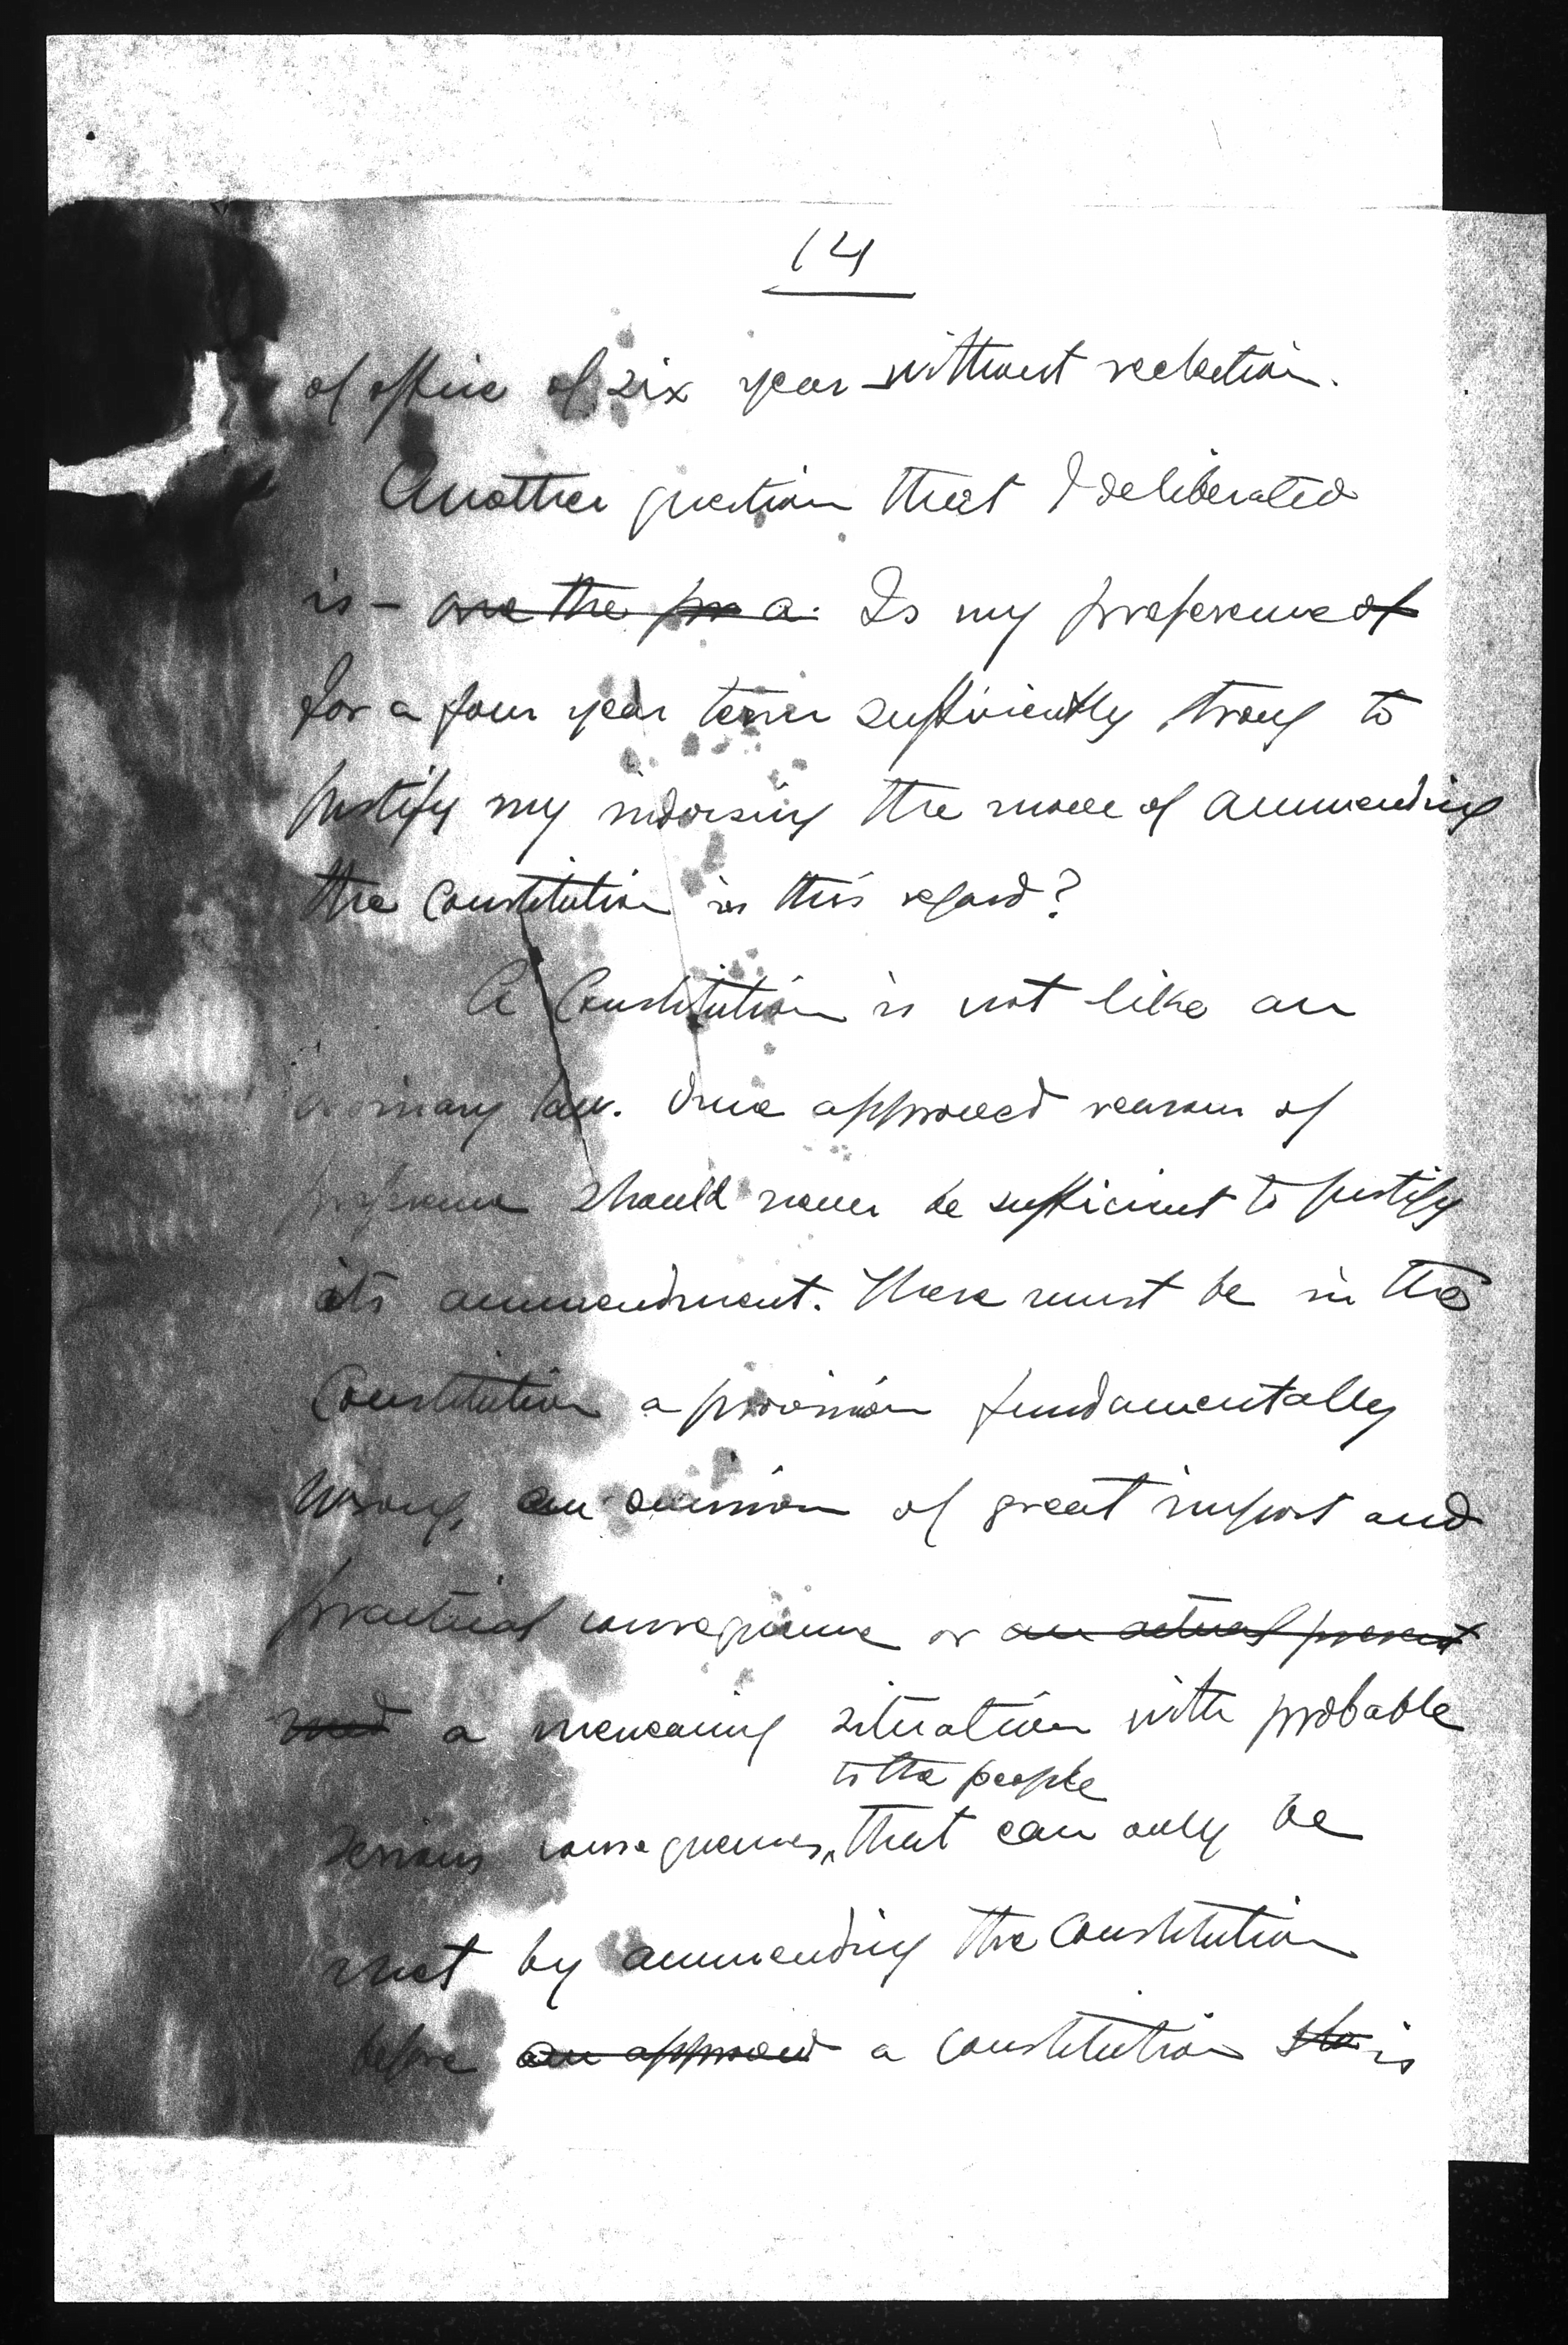 14
of office of six year without reelection.
Another question that I deliberated
is – are the pr a. Is my preference of
for a four year term sufficiently strong to
justify my indorsing the move of ammending
the Constitution in this regard?
A Constitution is not like an
ordinary law. Once approved reasons of
preference should never be sufficient to justify
its ammendment. There must be in the
Constitution a provision fundamentally
wrong, an omission of great import and
practical consequence or an actual present
need a menacing situation with probable
to the people
serious consequences, that can only be
met by ammending the Constitution
before an approved a constitution sho is